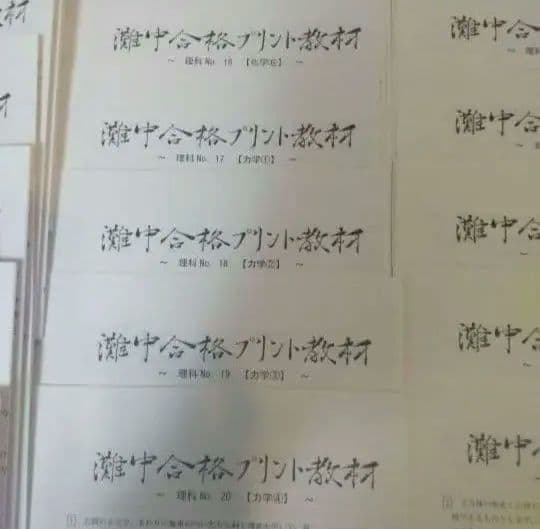 灘中合格プリント教材
～ 理科No. 16 【化学⑥】 ～
灘中合格プリント教材
～ 理科No. 17 【力学①】 ～
灘中合格プリント教材
～ 理科No. 18 【力学②】 ～
灘中合格プリント教材
～ 理科No. 19 【力学③】 ～
灘中合格プリント教材
～ 理科No. 20 【力学④】 ～
灘中合
灘中合
灘中合
灘中合
灘中